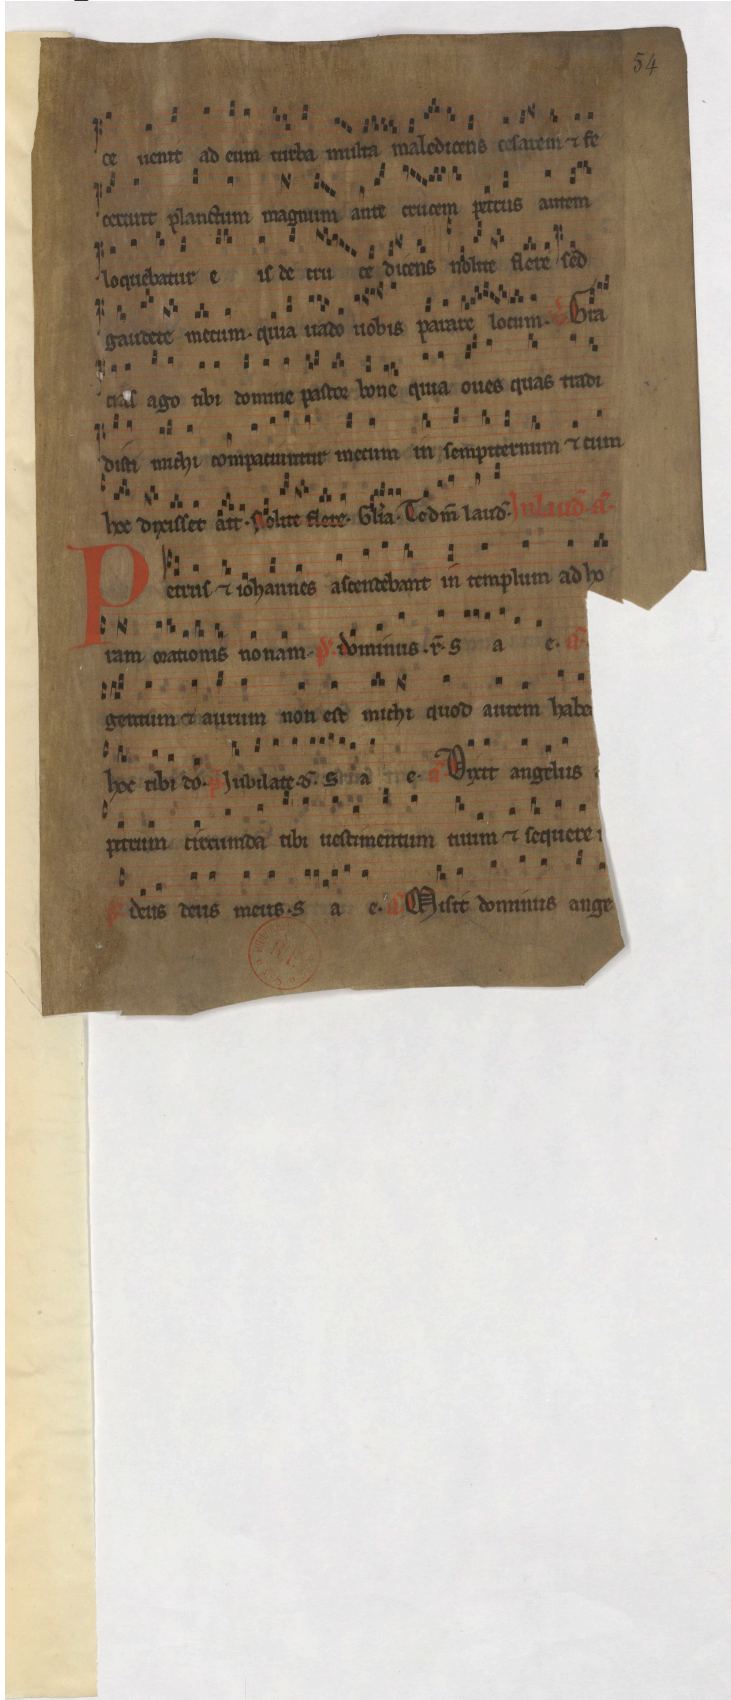 54
ce uenit ad eum turba multa maledicens cesarem ⁊ fe
cerunt planctum magnum ante crucem petrus autem
loquebatur e is de cru ce dicens nolite flere sed
gaudete mecum· quia uado uobis parare locum· Gra
cias ago tibi domine pastor bone quia oues quas tradi
disti michi compaciuntur mecum in sempiternum ⁊ cum
hoc dixisset ait· Nolite flere· Gl̄ia· Te dm̄ laud̄· In laud̄· a̅·
Petrus ⁊ iohannes ascendebant in templum ad ho
ram orationis nonam· p̄s· dominus· r̄· S a e· a̅·
gentum ⁊ aurum non est michi quod autem habe
hoc tibi do· p̄· Iubilate· d̄· S a e· a̅ Dixit angelus
petrum circumda tibi uestimentum tuum ⁊ sequere
p̄s· deus deus meus· S a e· a̅ Misit dominus ange